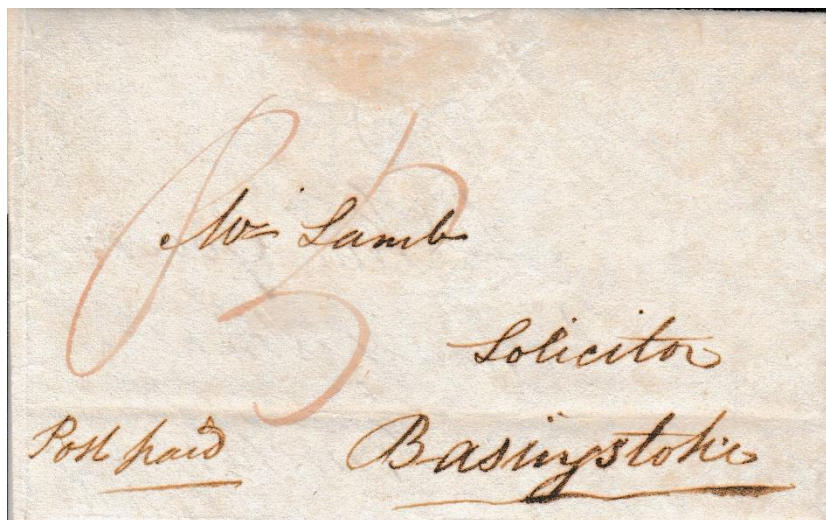 Mr Lamb
Solicitor
Post paid
Basingstoke